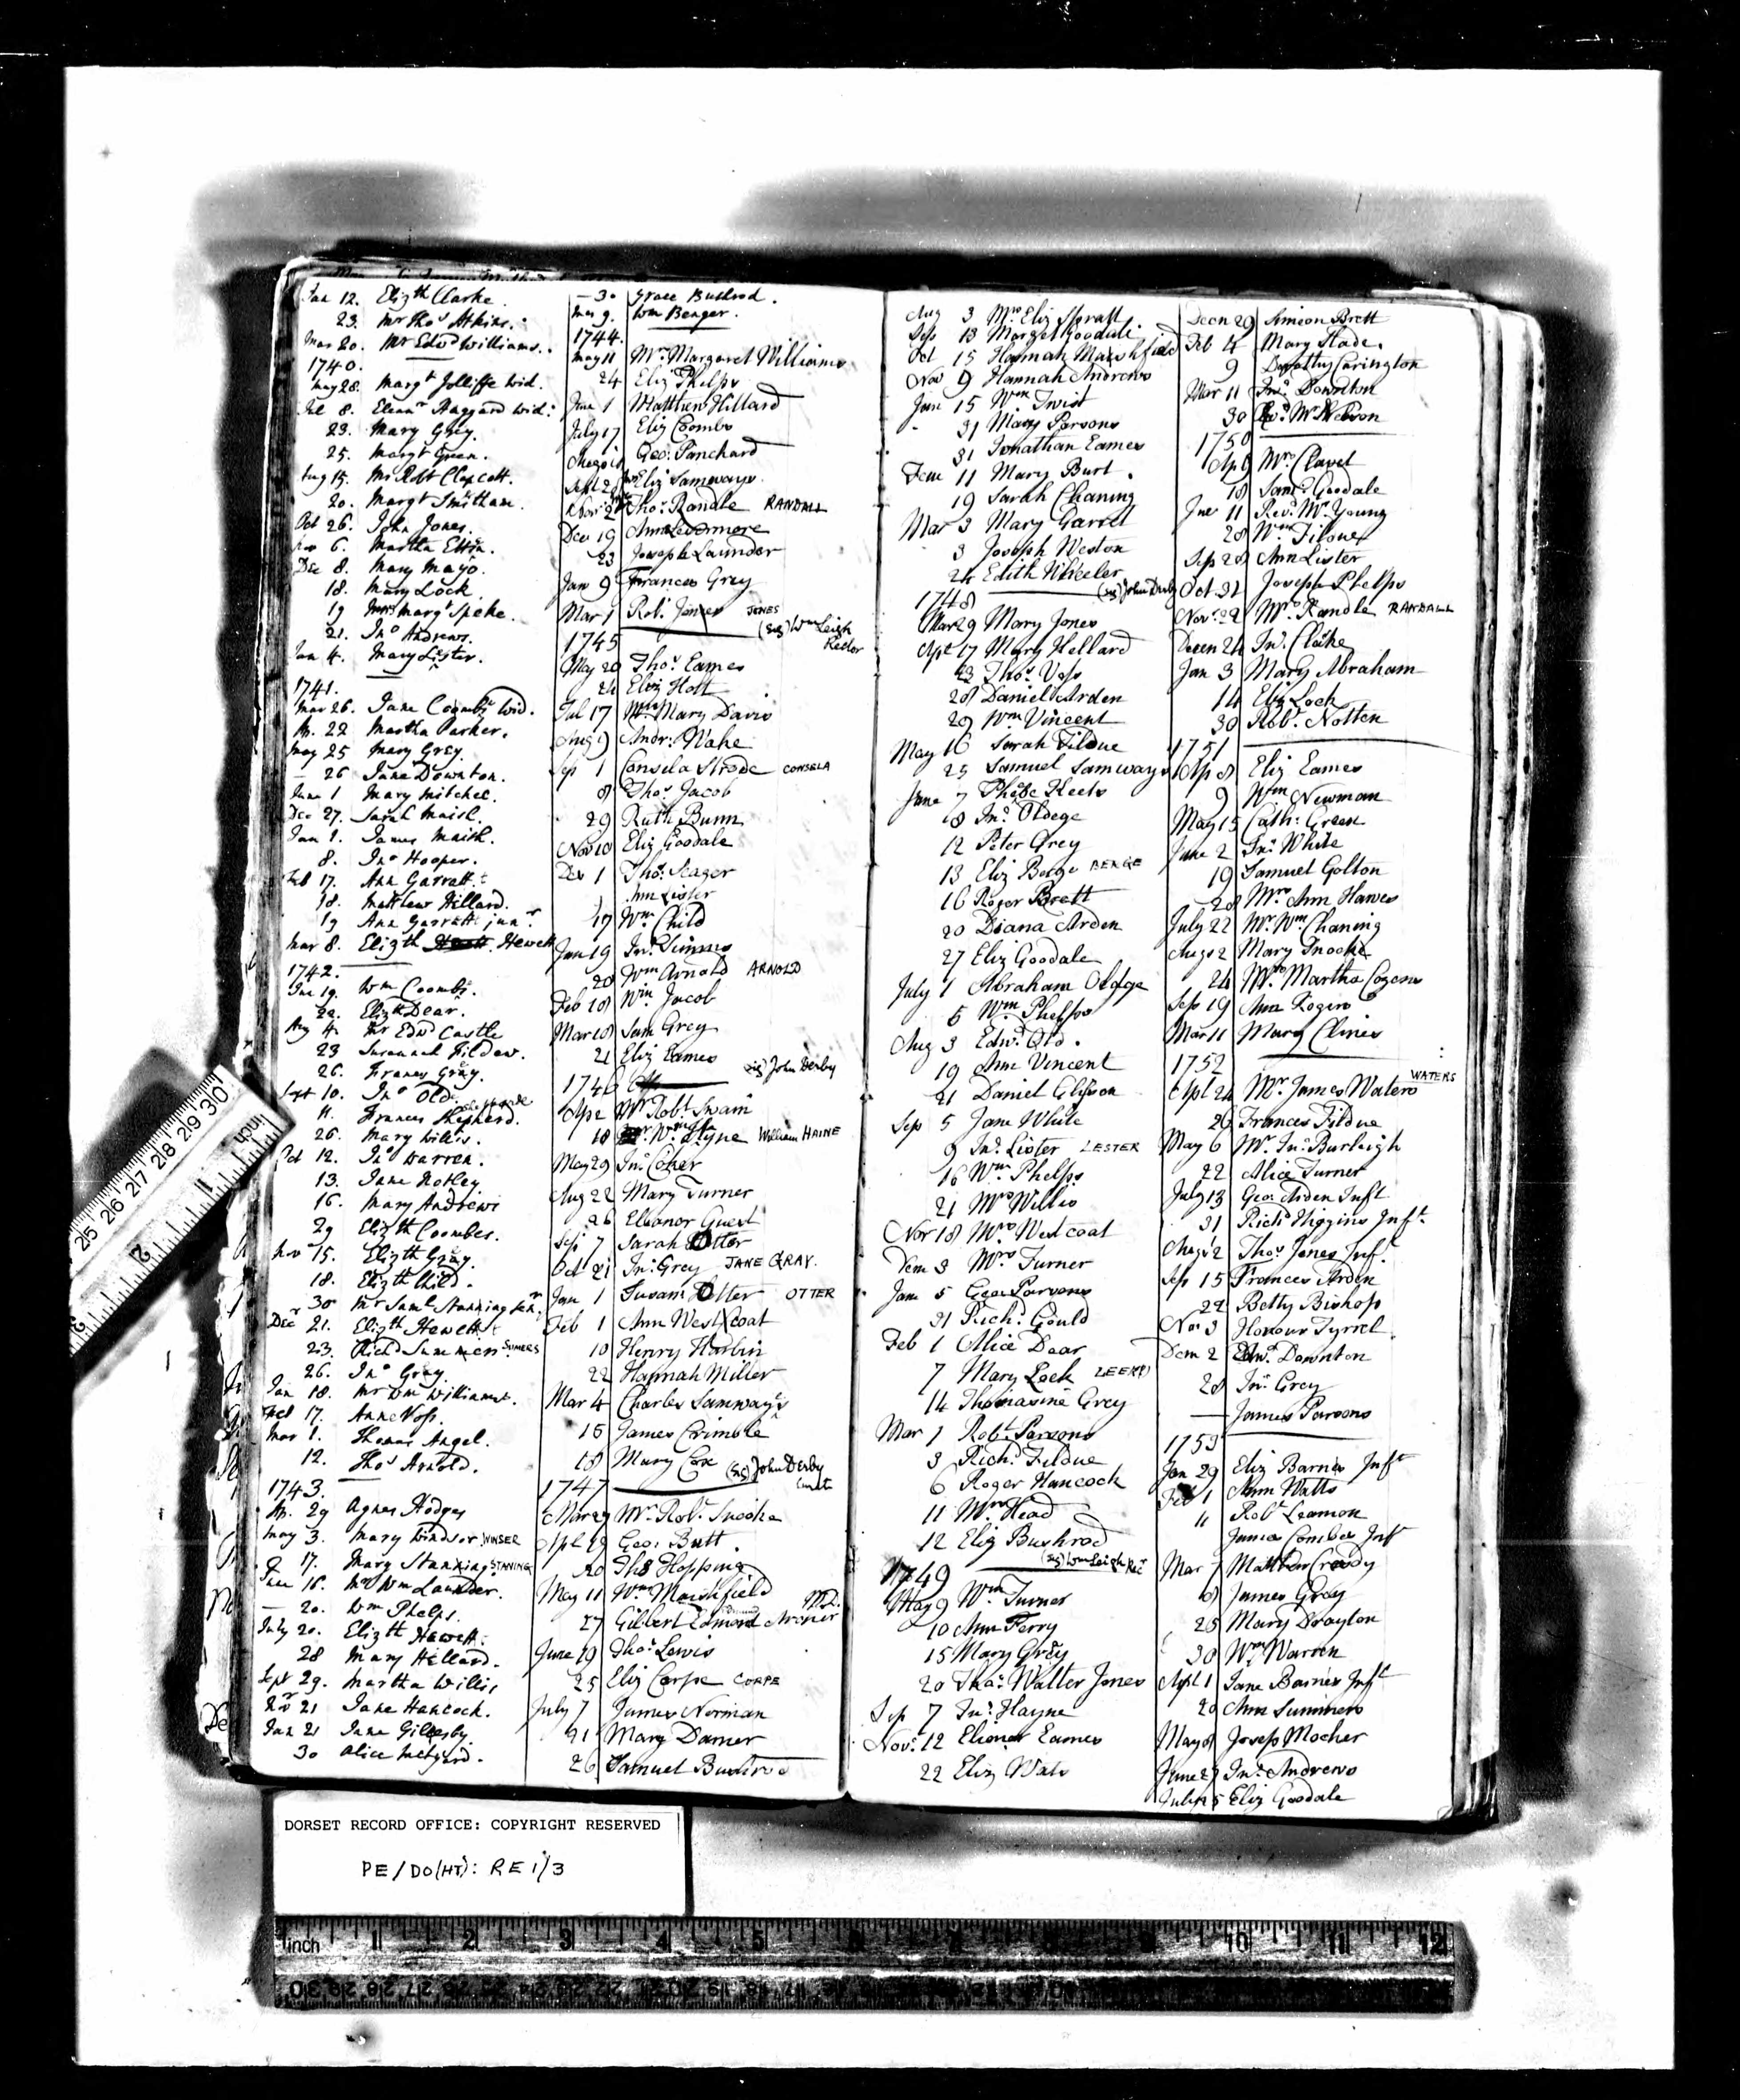 Jan 12. Elizth Clarke.
23. Mr Thos Atkins.
Mar 20. Mr Edwd Williams.
1740.
May 28. Margt Jolliffe wid.
Jul 8. Eleanr Haggard wid:
23. Mary Grey.
25. Margt Green.
Aug 15. Mr Robt Clapcott.
20. Margt Smitham.
Oct 26. John Jones.
Nov 6. Martha
Dec 8. Mary Mayo.
18. Mary Lock.
19 Mrs Margt Speke.
21. Jno Andrews.
Jan 4. Mary Lister.
1741.
Mar 26. Jane Coombs Wid.
Ap. 22 Martha Parker.
May 25 Mary Grey
— 26 Jane Downton.
June 1 Mary Mitchel.
Dec 27. Sarah
Jan 1. James
8. Jno Hooper.
Feb 17. Ann Garratt.
18. Matthew Hillard.
19 Ann Garratt junr.
Mar 8. Elizth Hewett
1742.
Jun 19. Wm Coombs.
22. Elizth Dear.
Aug 4. Mr Edwd Castle
23 Susannah Fildew.
26. Frances Gray.
Sept 10. Jno Old.
11. Frances Shepherd.
26. Mary Willis.
Oct 12. Jno Warren.
13. Jane Notley
16. Mary Andrews
29 Elizth Coombes.
Nov 15. Elizth Gray.
18. Elizth Child.
30 Mr Saml Stanning Senr.
Decr 21. Elizth Hewett
23. Richd Summers SUMERS
26. Jno Gray.
Jan 18. Mr Wm Williams.
Feb 17. Anne Voss.
Mar 1. Thomas Angel.
12. Thos Arnold.
1743.
Ap. 29 Agnes Hodges
May 3. Mary Windsor WINSER
17. Mary Stanning STANING
June 16. Mr Wm Launder.
— 20. Wm Phelps.
July 20. Elizth Hewett.
28 Mary Hillard.
Sept 29. Martha Willis
Nov 21 Jane Hancock.
Jan 21 Jane Gillesby.
30 Alice Metyard.
— 30 Grace Bushrod.
Mar 9. Wm Benger.
1744.
May 11 Mrs Margaret Williams
24 Eliz Phelps
June 1 Matthew Hillard
July 17 Eliz Combs
Augo 10 Geo: Panchard
Sept 20 Eliz Samways
Nov 2 Thos Randle RANDALL
Dec 19 Ann Levermore
23 Joseph Launder
Jan 9 Frances Grey
Mar 1 Robt Jones JONES
(sig) Wm Leigh
Rector
1745
May 20 Thos Eames
24 Eliz Hott
Jul 17 Mrs Mary Davis
Aug 9 Andr: Wake
Sep 1 Consela Strode CONSELA
8 Thos Jacob
29 Ruth Bunn
Nov 10 Eliz Goodale
Dec 1 Thos Seager
Ann Lister
17 Wm Child
Jan 19 Jno
20 Wm Arnold ARNOLD
Feb 18 Wm Jacob
Mar 18 Sam Grey
21 Eliz Eames
1746 (sig) John Derby
Apr 2 Mr Robt Swain
18 William HAINE
May 29 Jno Coker
Aug 22 Mary Turner
26 Eleanor Guest
Sep 7 Sarah Otter
Oct 21 Jn: Grey JANE GRAY.
Jan 1 Susan Otter OTTER
Feb 1 Ann Westcoat
10 Henry Harbin
22 Hannah Miller
Mar 4 Charles Samways
15 James Crimble
18 Mary Cox
(sig) John Derby
Curate
1747
Mar 29 Mr Robt Snooke
Apl 19 Geo: Butt.
20 Thos Hopping
May 11 Wm Marshfield
27 Gilbert Edmond
June 19 Thos Lewis
25 Eliz Corpe CORPE
July 7 James Norman
21 Mary Damer
26 Samuel Bushrod
Aug 3 Mrs Eliz Spratt
Sep 13 Marget Goodale
Oct 15 Hannah Marshfield
Nov 9 Hannah Andrews
Jan 15 Wm Twist
31 Mary Parsons
31 Jonathan Eames
Fem 11 Mary Burt.
19 Sarah Chaning
Mar 3 Mary Garret
3 Joseph Weston
24 Edith Wheeler
(sig) John Derby
1748
Mar 29 Mary Jones
Apl 17 Mary Hellard
23 Thos Voss
28 Daniel Arden
29 Wm Vincent
May 16 Sarah Fildue
25 Samuel Samways
June 7 Keets
8 Jno Oldege
12 Peter Grey
13 Eliz Berge BERGE
16 Roger Brett
20 Diana Arden
27 Eliz Goodale
July 1 Abraham Oldge
5 Wm Phelps
Aug 3 Edwd Old.
19 Ann Vincent
21 Daniel Gibson
Sep 5 Jane White
9 Jno Lister LESTER
16 Wm Phelps
21 Mrs Willis
Nov 18 Mrs Westcoat
Dem 3 Mrs Turner
Jan 5 Geo Parsons
31 Richd Gould
Feb 1 Alice Dear
7 Mary Lock
14 Thomasine Grey
Mar 1 Robt Parsons
3 Richd Fildue
6 Roger Hancock
11 Mrs Head
12 Eliz Bushrod
(sig) Wm Leigh Recr
1749
May 9 Wm Turner
10 Ann Ferry
15 Mary Grey
20 Thos Walter Jones
Sep 7 Jno Hayne
Nov: 12 Elionor Eames
22 Eliz Wats
Decn 29 Simeon Brett
Feb 4 Mary Slade.
9 Dorothy Carington
Mar 11 Jno Downton
30 Revd Mr
1750
Apl 9 Mrs Clavel
18 Saml Goodale
Jue 11 Revd Mr Young
28 Wm Fildue
Sep 28 Ann Lister
Oct 31 Joseph Phelps
Novr 22 Mrs Randle RANDALL
Decen 24 Jno Clarke
Jan 3 Mary Abraham
14 Eliz Lock
30 Robt Notten
1751
Ap 8 Eliz Eames
9 Wm Newman
May 15 Cath: Green
June 2 Jno White
19 Samuel Golton
28 Mrs Ann Hawes
July 22 Mr Wm Chaning
Augs 2 Mary Snooke
24 Mrs Martha Cozens
Sep 19 Ann Rogers
Mar 11 Mary Clines
1752
Apl 24 Mr James Waters WATERS
26 Frances Fildue
May 6 Mr Jno Burleigh
22 Alice Turner
July 13 Geo: Arden Inft
31 Richd Higgins Inft.
Augst 2 Thos Jones Inft
Sep 15 Frances Arden
22 Betty Bishop
Nov 3 Honour Tyrrel
Dem 2 Edwd Downton
28 Jno Grey
— James Parsons
1753
Jan 29 Eliz Barnes Inft
Feb 1 Ann Watts
11 Robt Leamon
James Combes Inft
Mar 7 Matthew
8 James Grey
25 Mary Drayton
30 Wm Warren
Apl 1 Jane Barnes Inft
20 Ann Summers
May 8 Joseph Mocher
June 27 Jno Andrews
July 15 Eliz Goodale
DORSET RECORD OFFICE: COPYRIGHT RESERVED
PE/DO(HT): RE 1/3